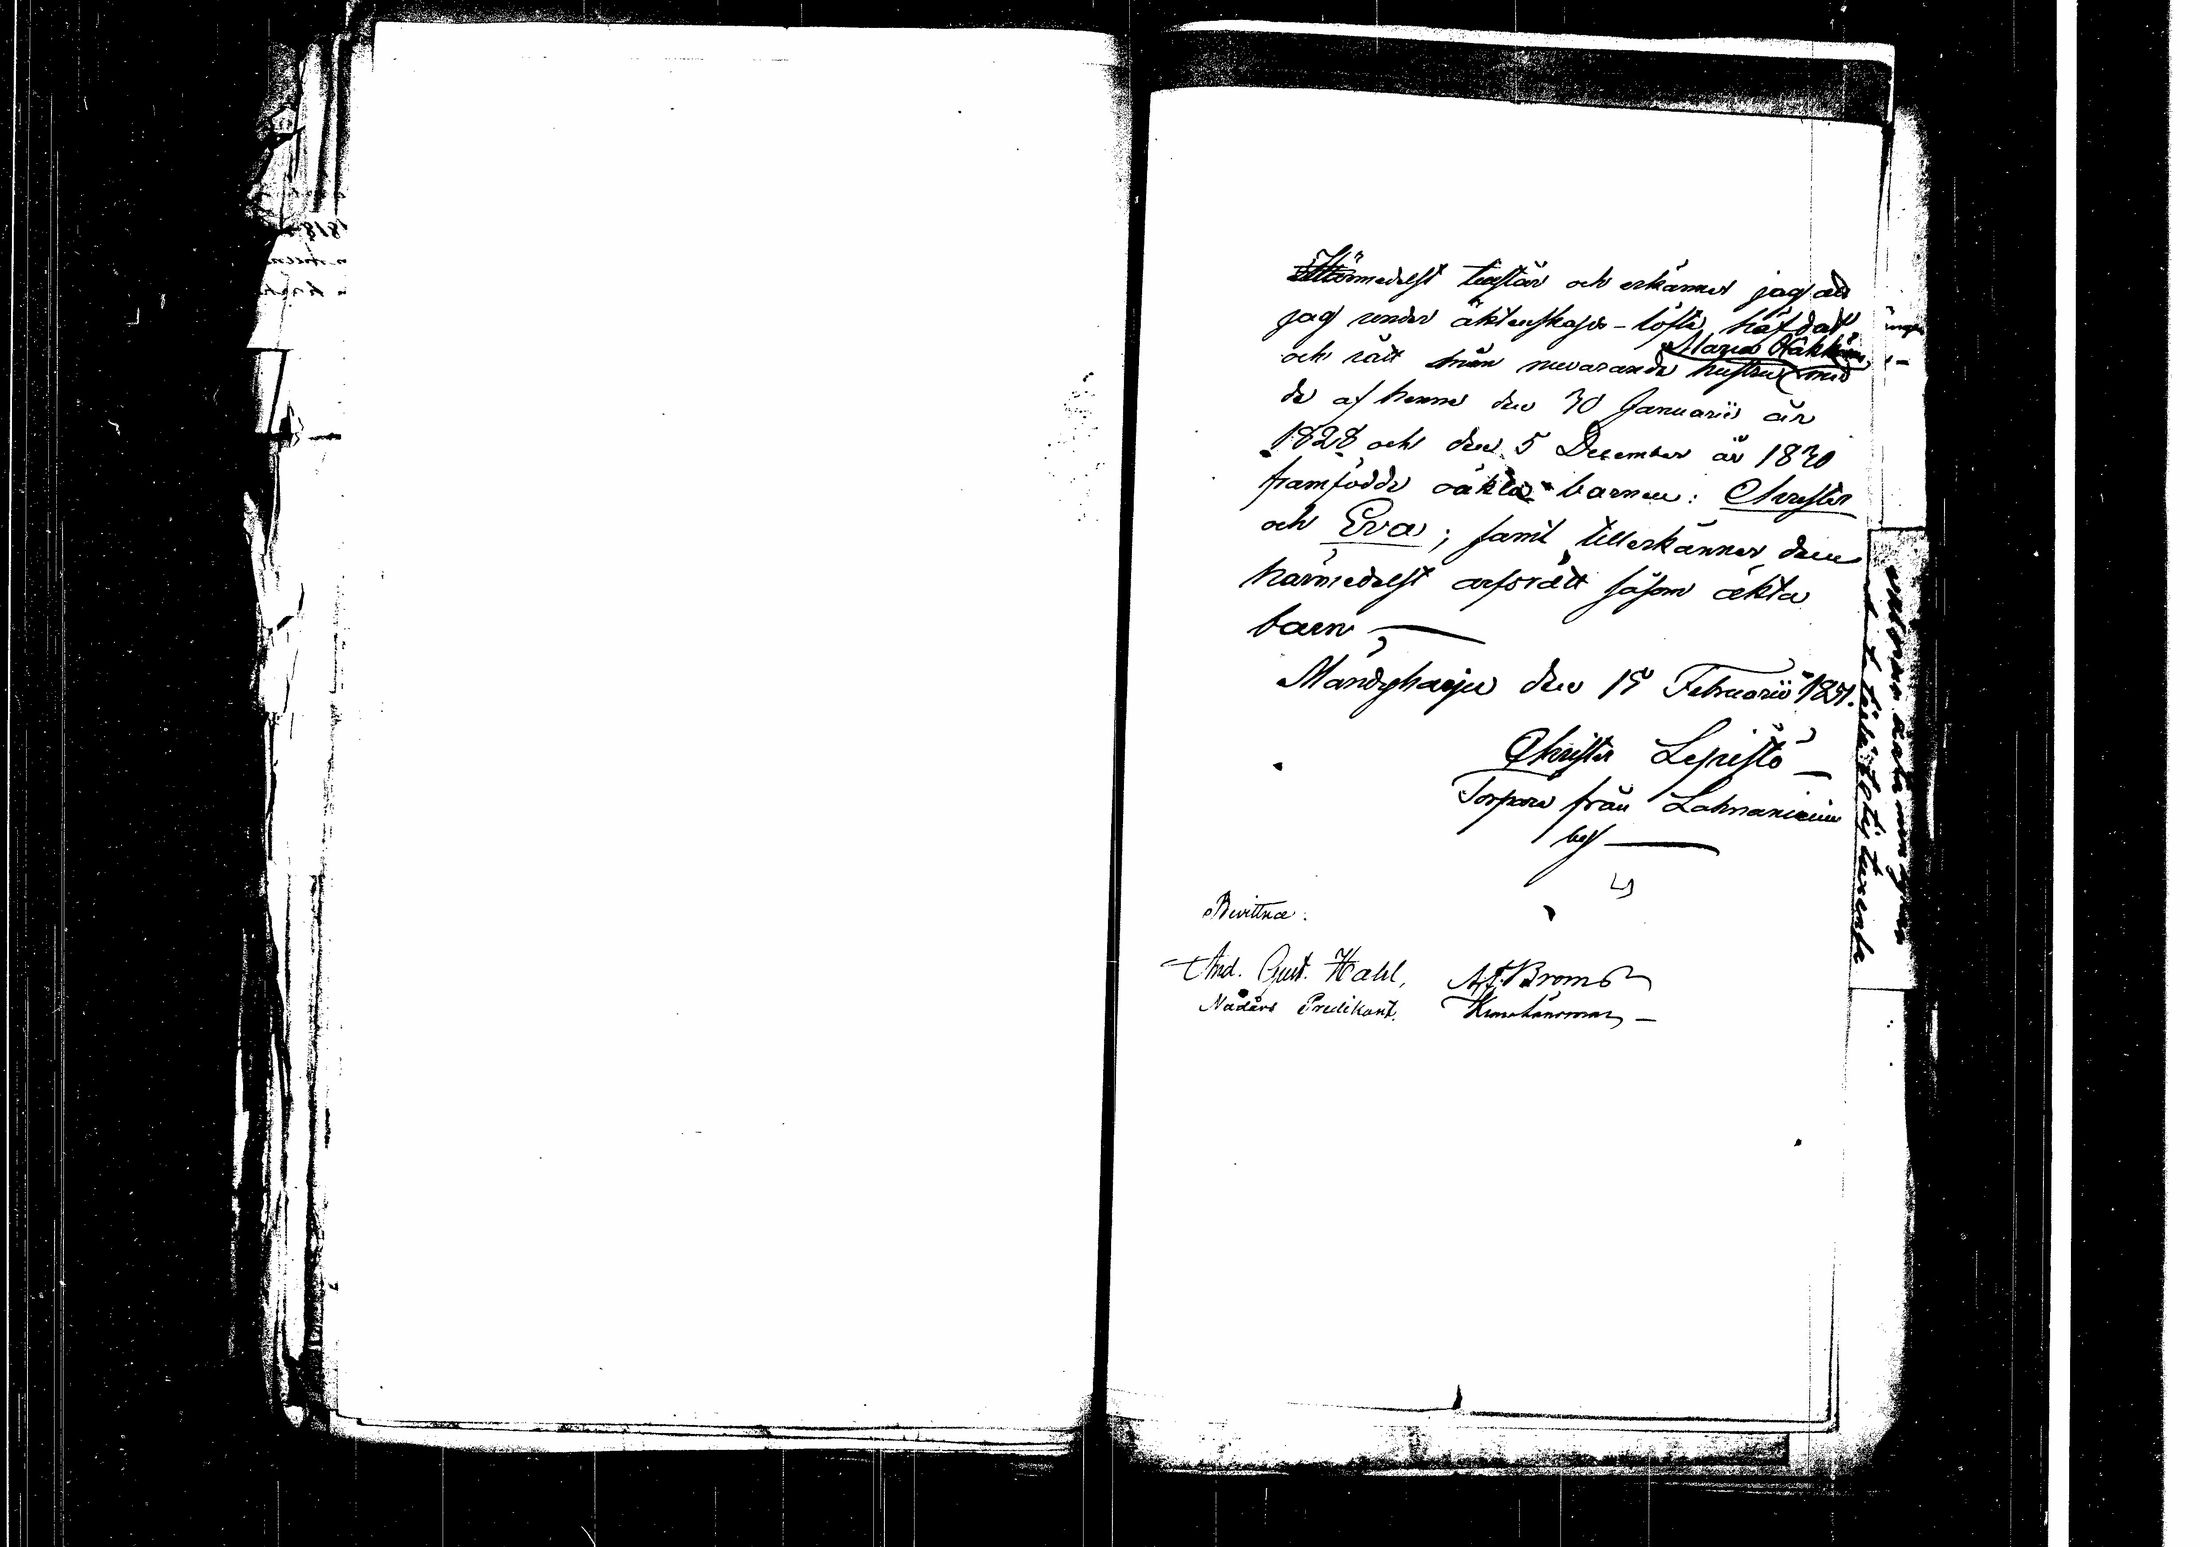 Härmedelst tilstår och erkänner jag at
jag under äktenskaps-löfte häfdat
Maria Häkkin
och rått min nuvarande hustru med
de af henne den 30 Januarii år
1828 och den 5 December år 1830
framfödde oäkta barnen: Christer
och Eva; samt tillerkänner dem
härmedelst arfsrätt såsom äkta
barn —
Mändyharju den 15 Februarii 1851.
Christer Lepistö —
Torpare från Lahnaniemi
by —
LS
Bevittna:
And. Gust. Hahl, A. F. Broms
Nådårs Predikant. Kronolänsman —